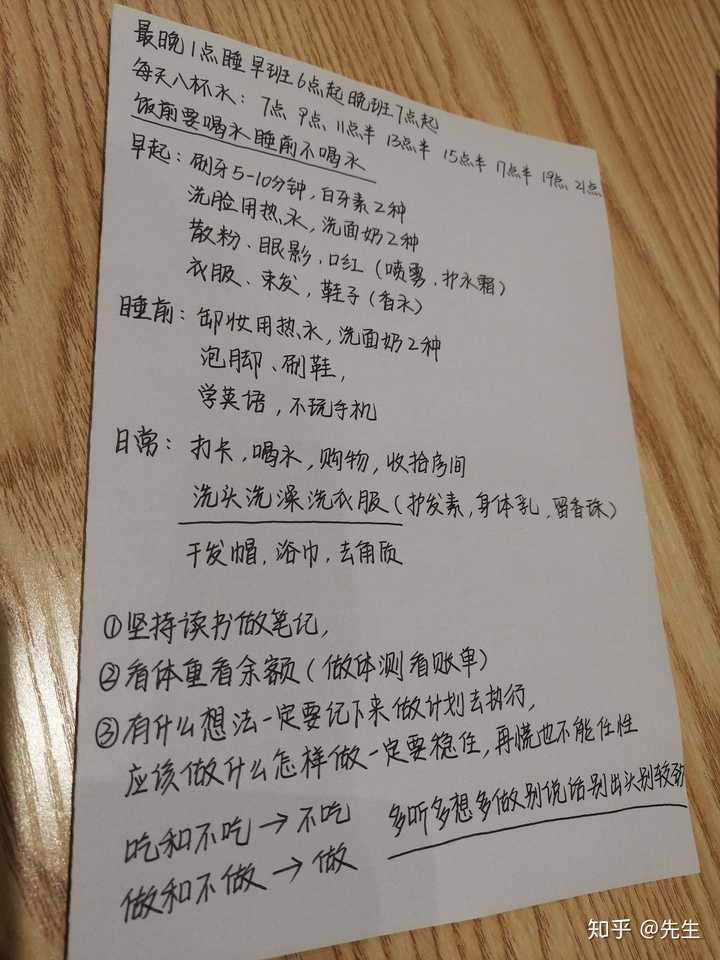 最晚1点睡 早班6点起 晚班7点起
每天八杯水：7点 9点 11点半 13点半 15点半 17点半 19点 21点
饭前要喝水 睡前不喝水
早起：刷牙5-10分钟，白牙素2种
洗脸用热水，洗面奶2种
散粉、眼影、口红（喷雾、护水霜）
衣服、束发，鞋子（香水）
睡前：卸妆用热水，洗面奶2种
泡脚、刷鞋，
学英语，不玩手机
日常：打卡，喝水，购物，收拾房间
洗头洗澡洗衣服（护发素，身体乳，留香珠）
干发帽，浴巾，去角质
①坚持读书做笔记，
②看体重看余额（做体测看账单）
③有什么想法一定要记下来做计划去执行，
应该做什么怎样做一定要稳住，再慌也不能任性
吃和不吃→不吃
多听多想多做别说话别出头别较劲
做和不做→做
知乎 @先生